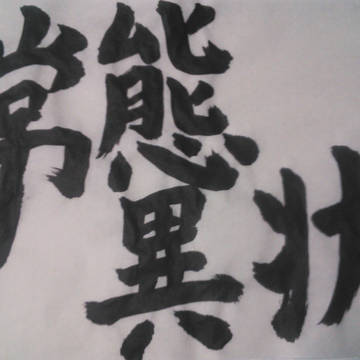 状
態異
常